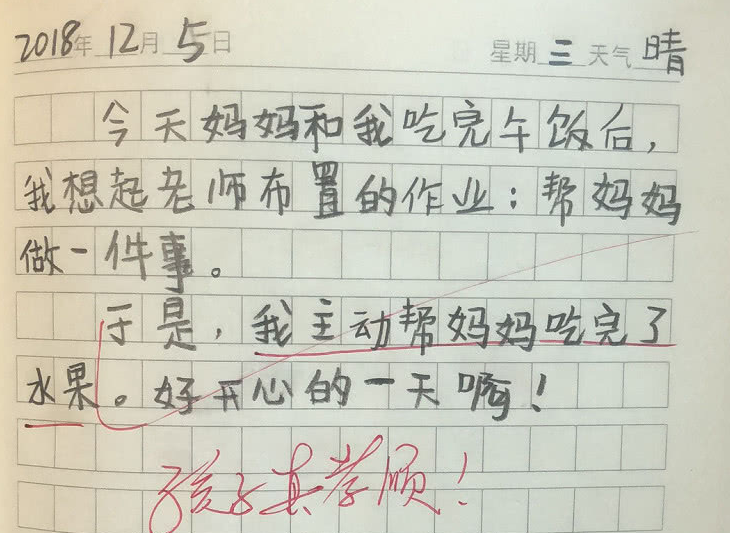 2018年12月5日 星期三 天气 晴
今天妈妈和我吃完午饭后，
我想起老师布置的作业：帮妈妈
做一件事。
于是，我主动帮妈妈吃完了
水果。好开心的一天啊！
孩子真孝顺！